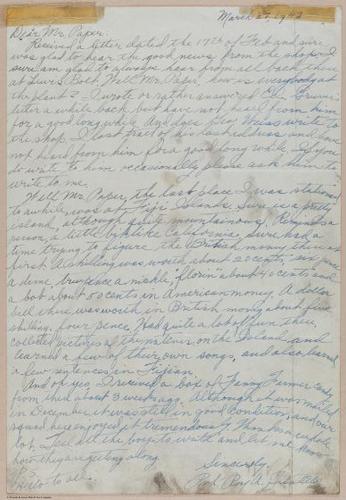 March 27, 1943
Dear Mr. Paper.
Received a letter dated the 17th of Feb and sure
was glad to hear the good news from the shop. I
sure am glad to always hear from all of them
at Well Mr. Paper how is everybody at
the plant? I wrote or rather answered
letter a while back but have not heard from him
for a good long while. And does write to
the shop. I lost track of his last address and have
not heard from him for a good long while. If you
do write to him occasionally please ask him to
write to me.
Well Mr. Paper, the last place I was stationed
awhile, was at Fiji Islands. Sure is a pretty
island, although quite mountainous. Reminds a
person, a little bit like California. Sure had a
time trying to figure the British money there at
first. A shilling was worth about 20 cents, six pence
a dime, a nickle, "florin" about 40 cents and
a bob about 50 cents in American money. A dollar
bill there was worth in British money about five
shilling, four pence. Had quite a lot of fun there,
collected pictures of the natives on the Island and
learned a few of their own songs, and also learned
a few sentences in Fijian.
And oh yes, I received a box of Fanny Farmer candy
from shed about 3 weeks ago. Although it was mailed
in December, it was still in good condition, and our
squad here enjoyed it tremendously. Thank
lot. Tell all the boys to write and let me know
how they are getting along.
Sincerely
P.S.
Hello to all.
Roy A.